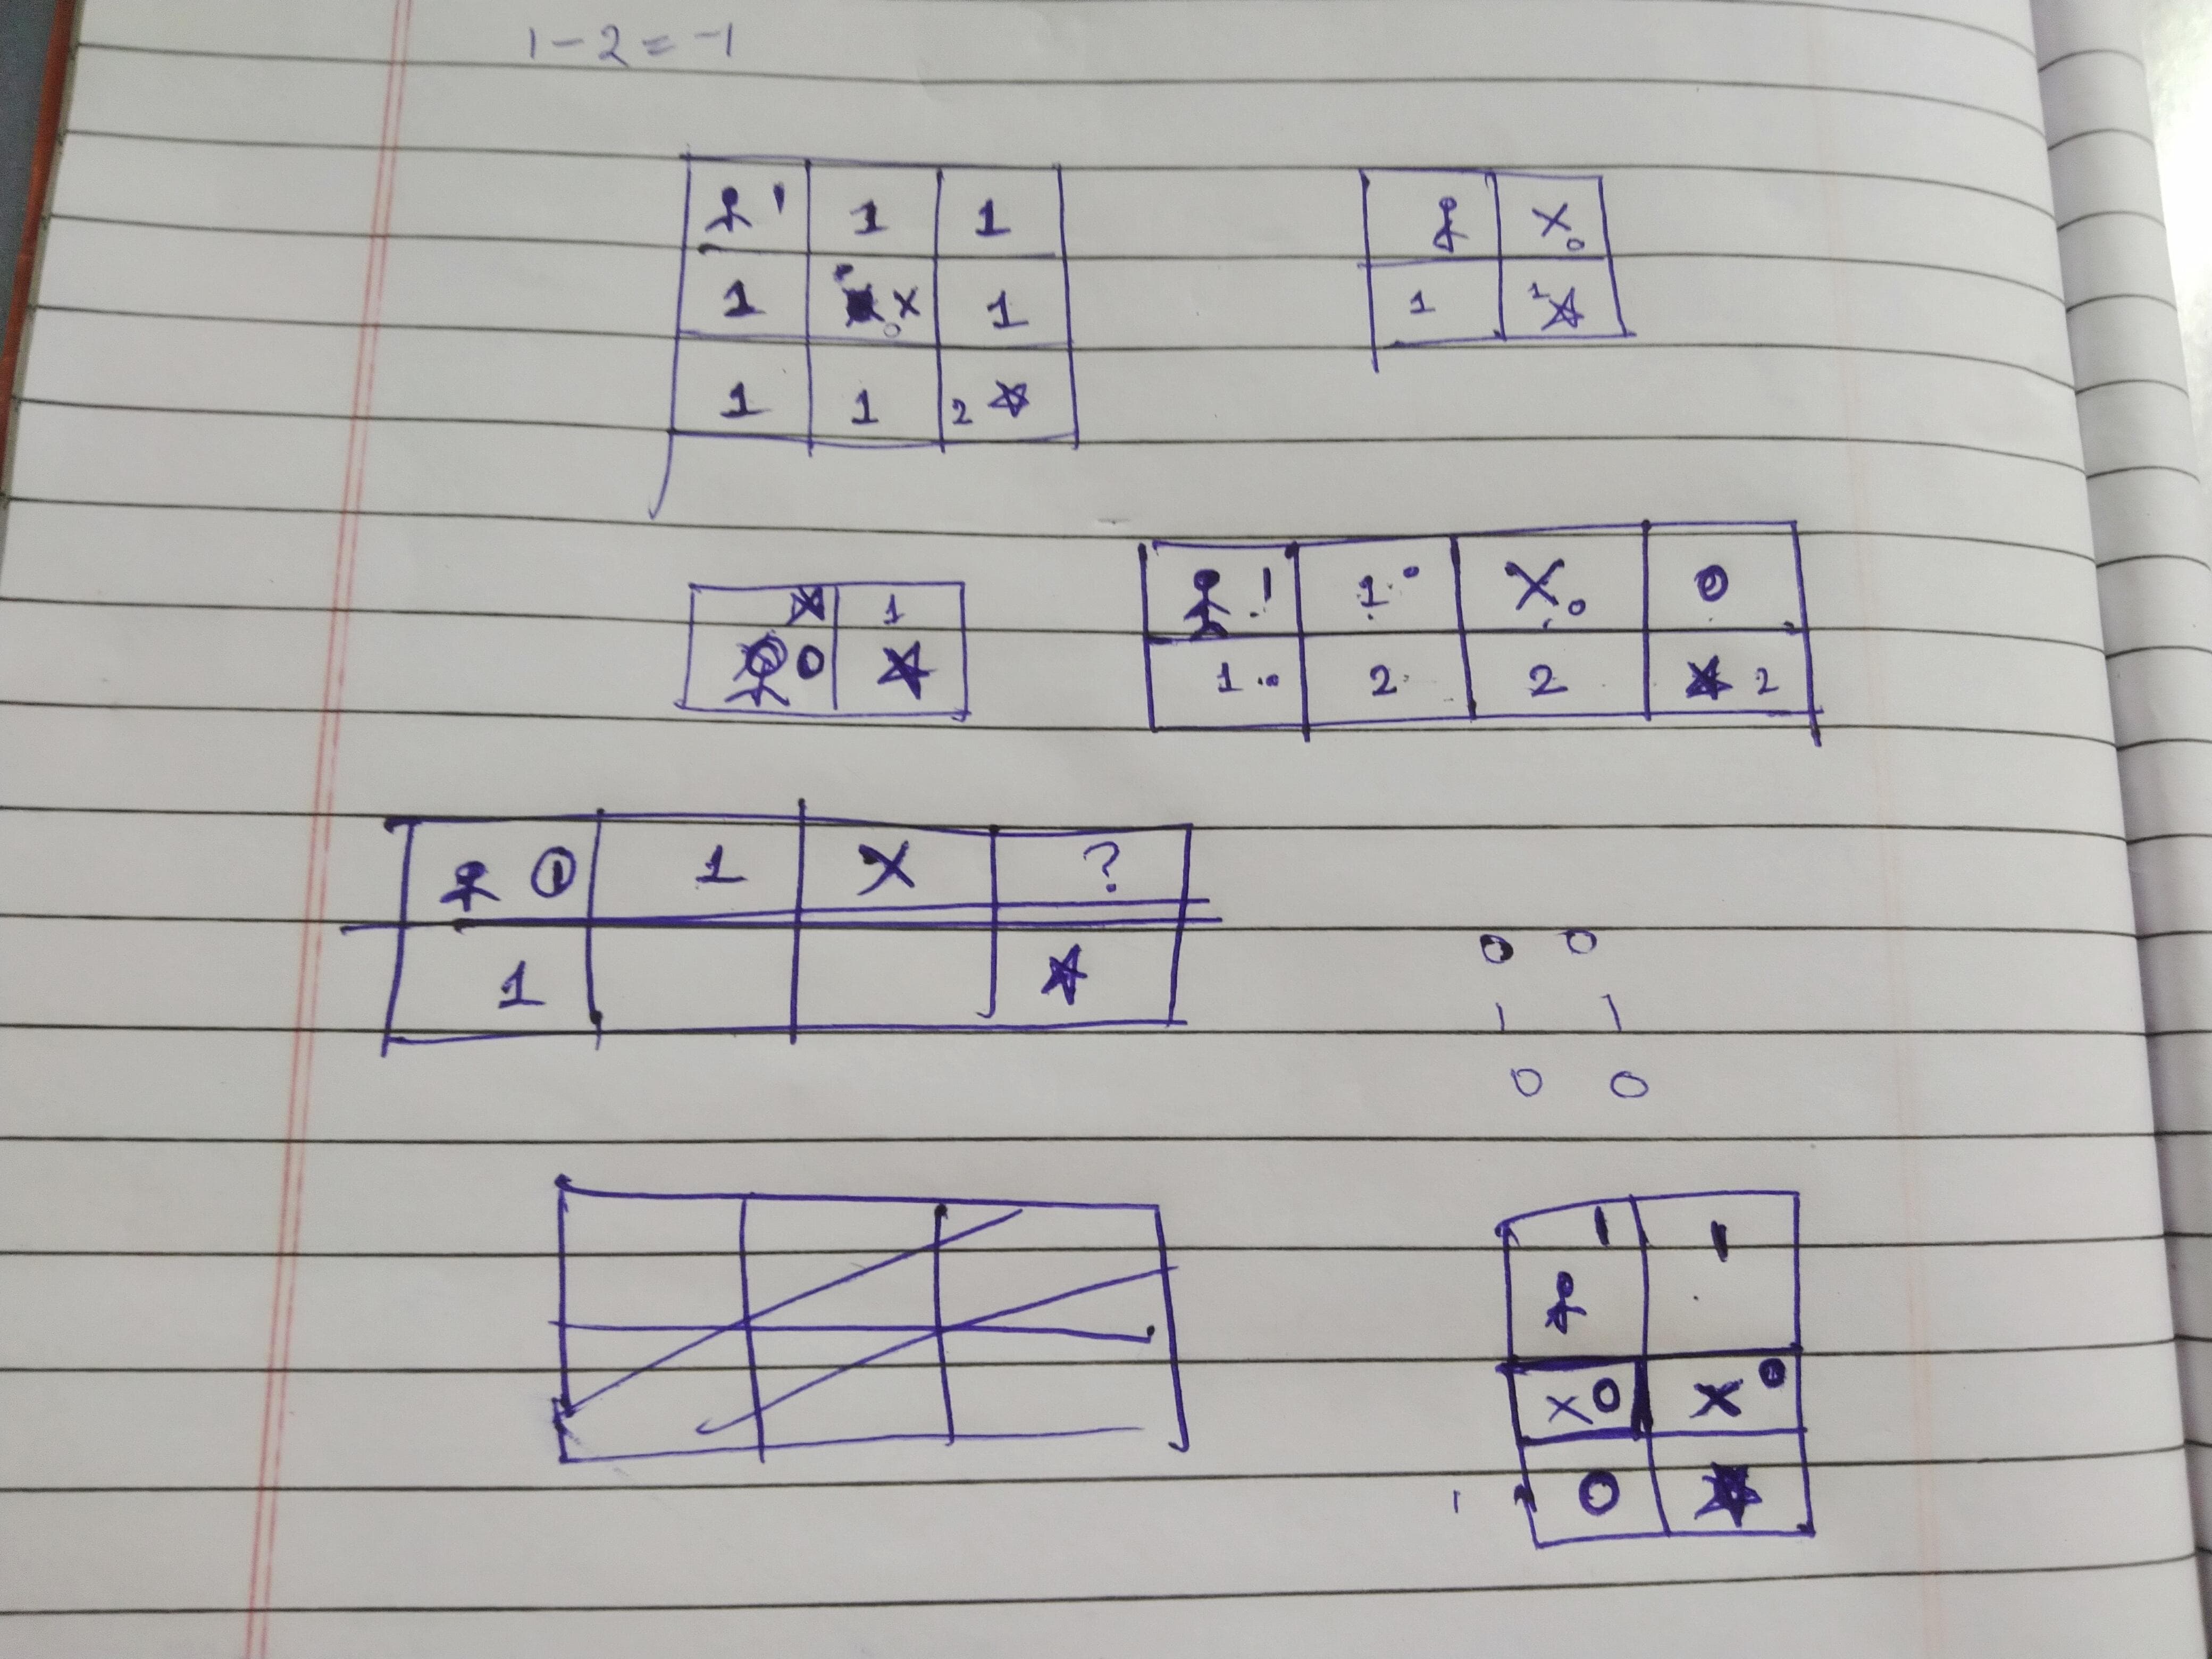 1 - 2 = -1
1 1 1
x 0
1 x 0 1
1 1 2
1 1
x 1
0
1 1 x 0 0
1 2 2 2
1 1 x ?
1
0 0
1 1
0 0
1 1
x 0 x 0
1 0